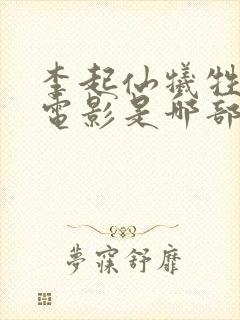 李起仙犧牲
電影是哪部
夢寐舒靡